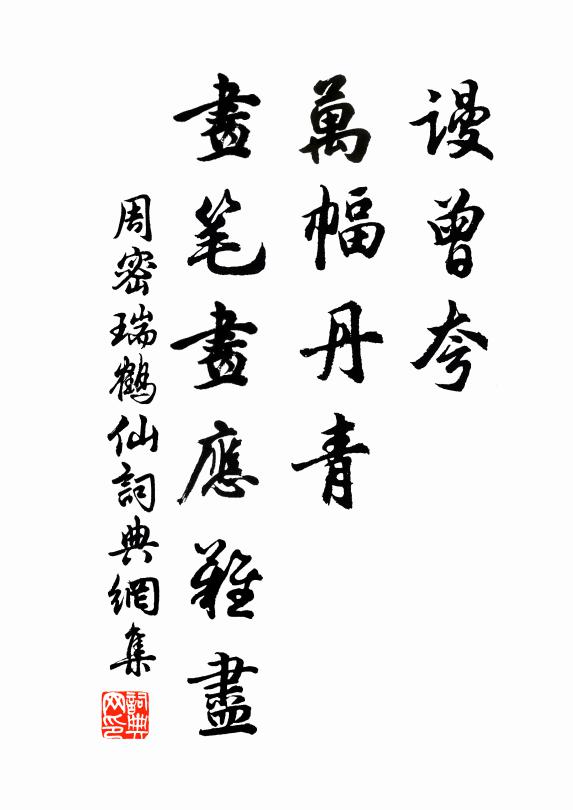 谩曾夸
萬幅丹青
畫笔畫應難盡
周密瑞鶴仙詞典網集
詞典网印